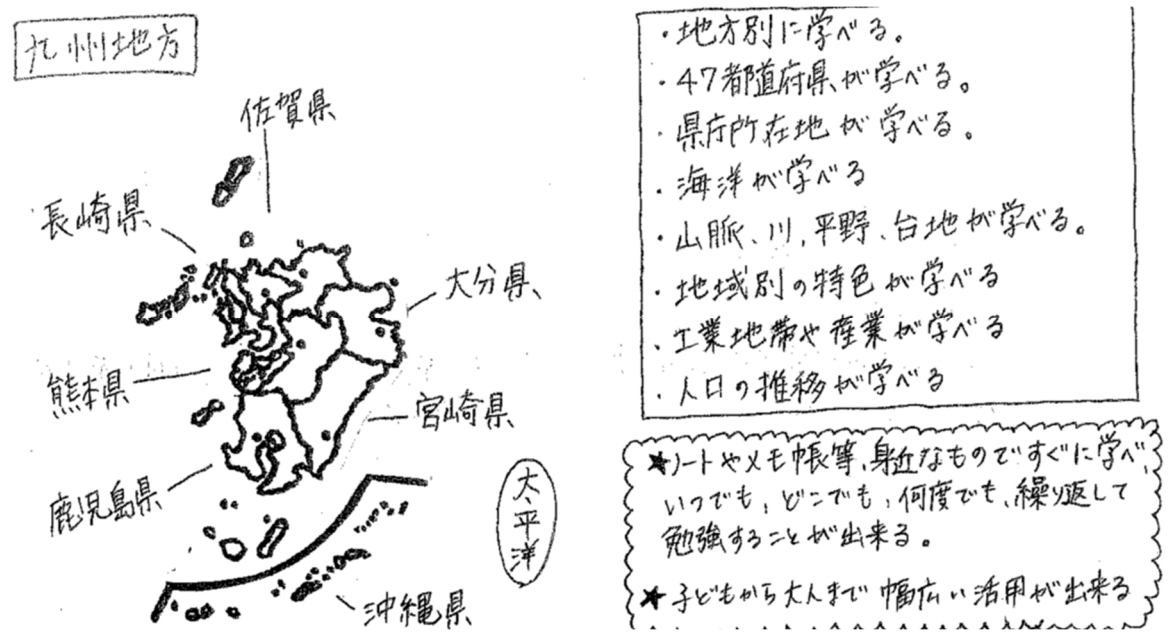 九州地方
佐賀県
長崎県
大分県、
熊本県
宮崎県
鹿児島県
太平洋
沖縄県
・地方別に学べる。
・47都道府県が学べる。
・県庁所在地が学べる。
・海洋が学べる
・山脈、川、平野、台地が学べる。
・地域別の特色が学べる
・工業地帯や産業が学べる
・人口の推移が学べる
★ノートやメモ帳等、身近なものですぐに学べ、
いつでも、どこでも、何度でも、繰り返して
勉強することが出来る。
★子どもから大人まで幅広い活用が出来る